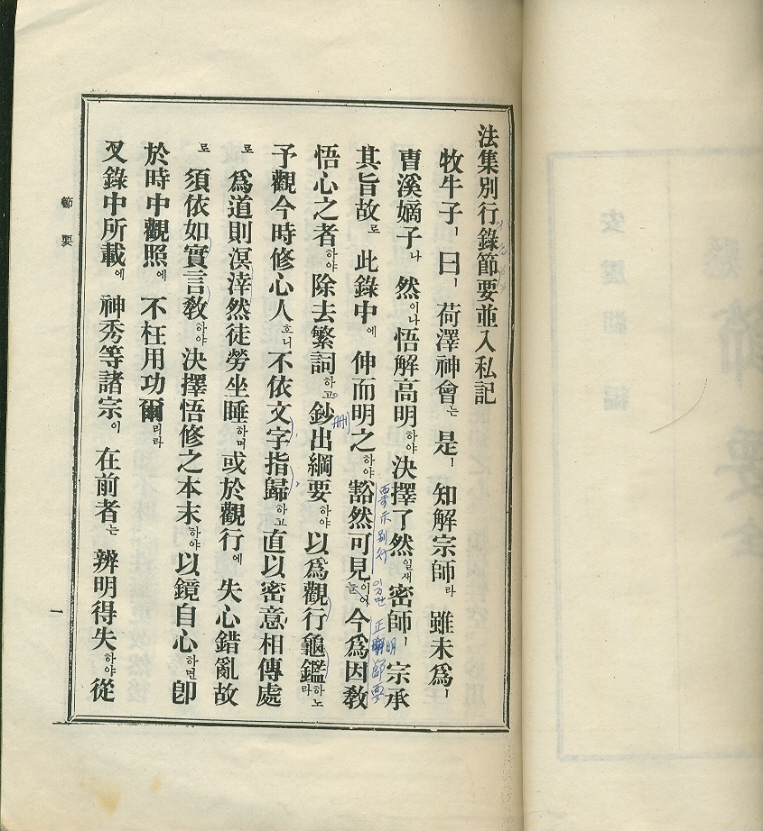 法集別行錄節要並入私記
牧牛子ㅣ曰ㅣ荷澤神會는是ㅣ知解宗師라雖未爲ㅣ
曹溪嫡子나然이나悟解高明하야決擇了然일새密師ㅣ宗承
其旨故로此錄中에伸而明之하야豁然可見이어늘今爲因敎
悟心之者하야除去繁詞하고鈔出綱要하야以爲觀行龜鑑하노라
予觀今時修心人호니不依文字指歸하고直以密意相傳處
로爲道則溟涬然徒勞坐睡하며或於觀行에失心錯亂故
로須依如實言敎하야決擇悟修之本末하야以鏡自心하면卽
於時中觀照에不枉用功爾리라
又錄中所載에神秀等諸宗이在前者는辨明得失하야從
節要
一